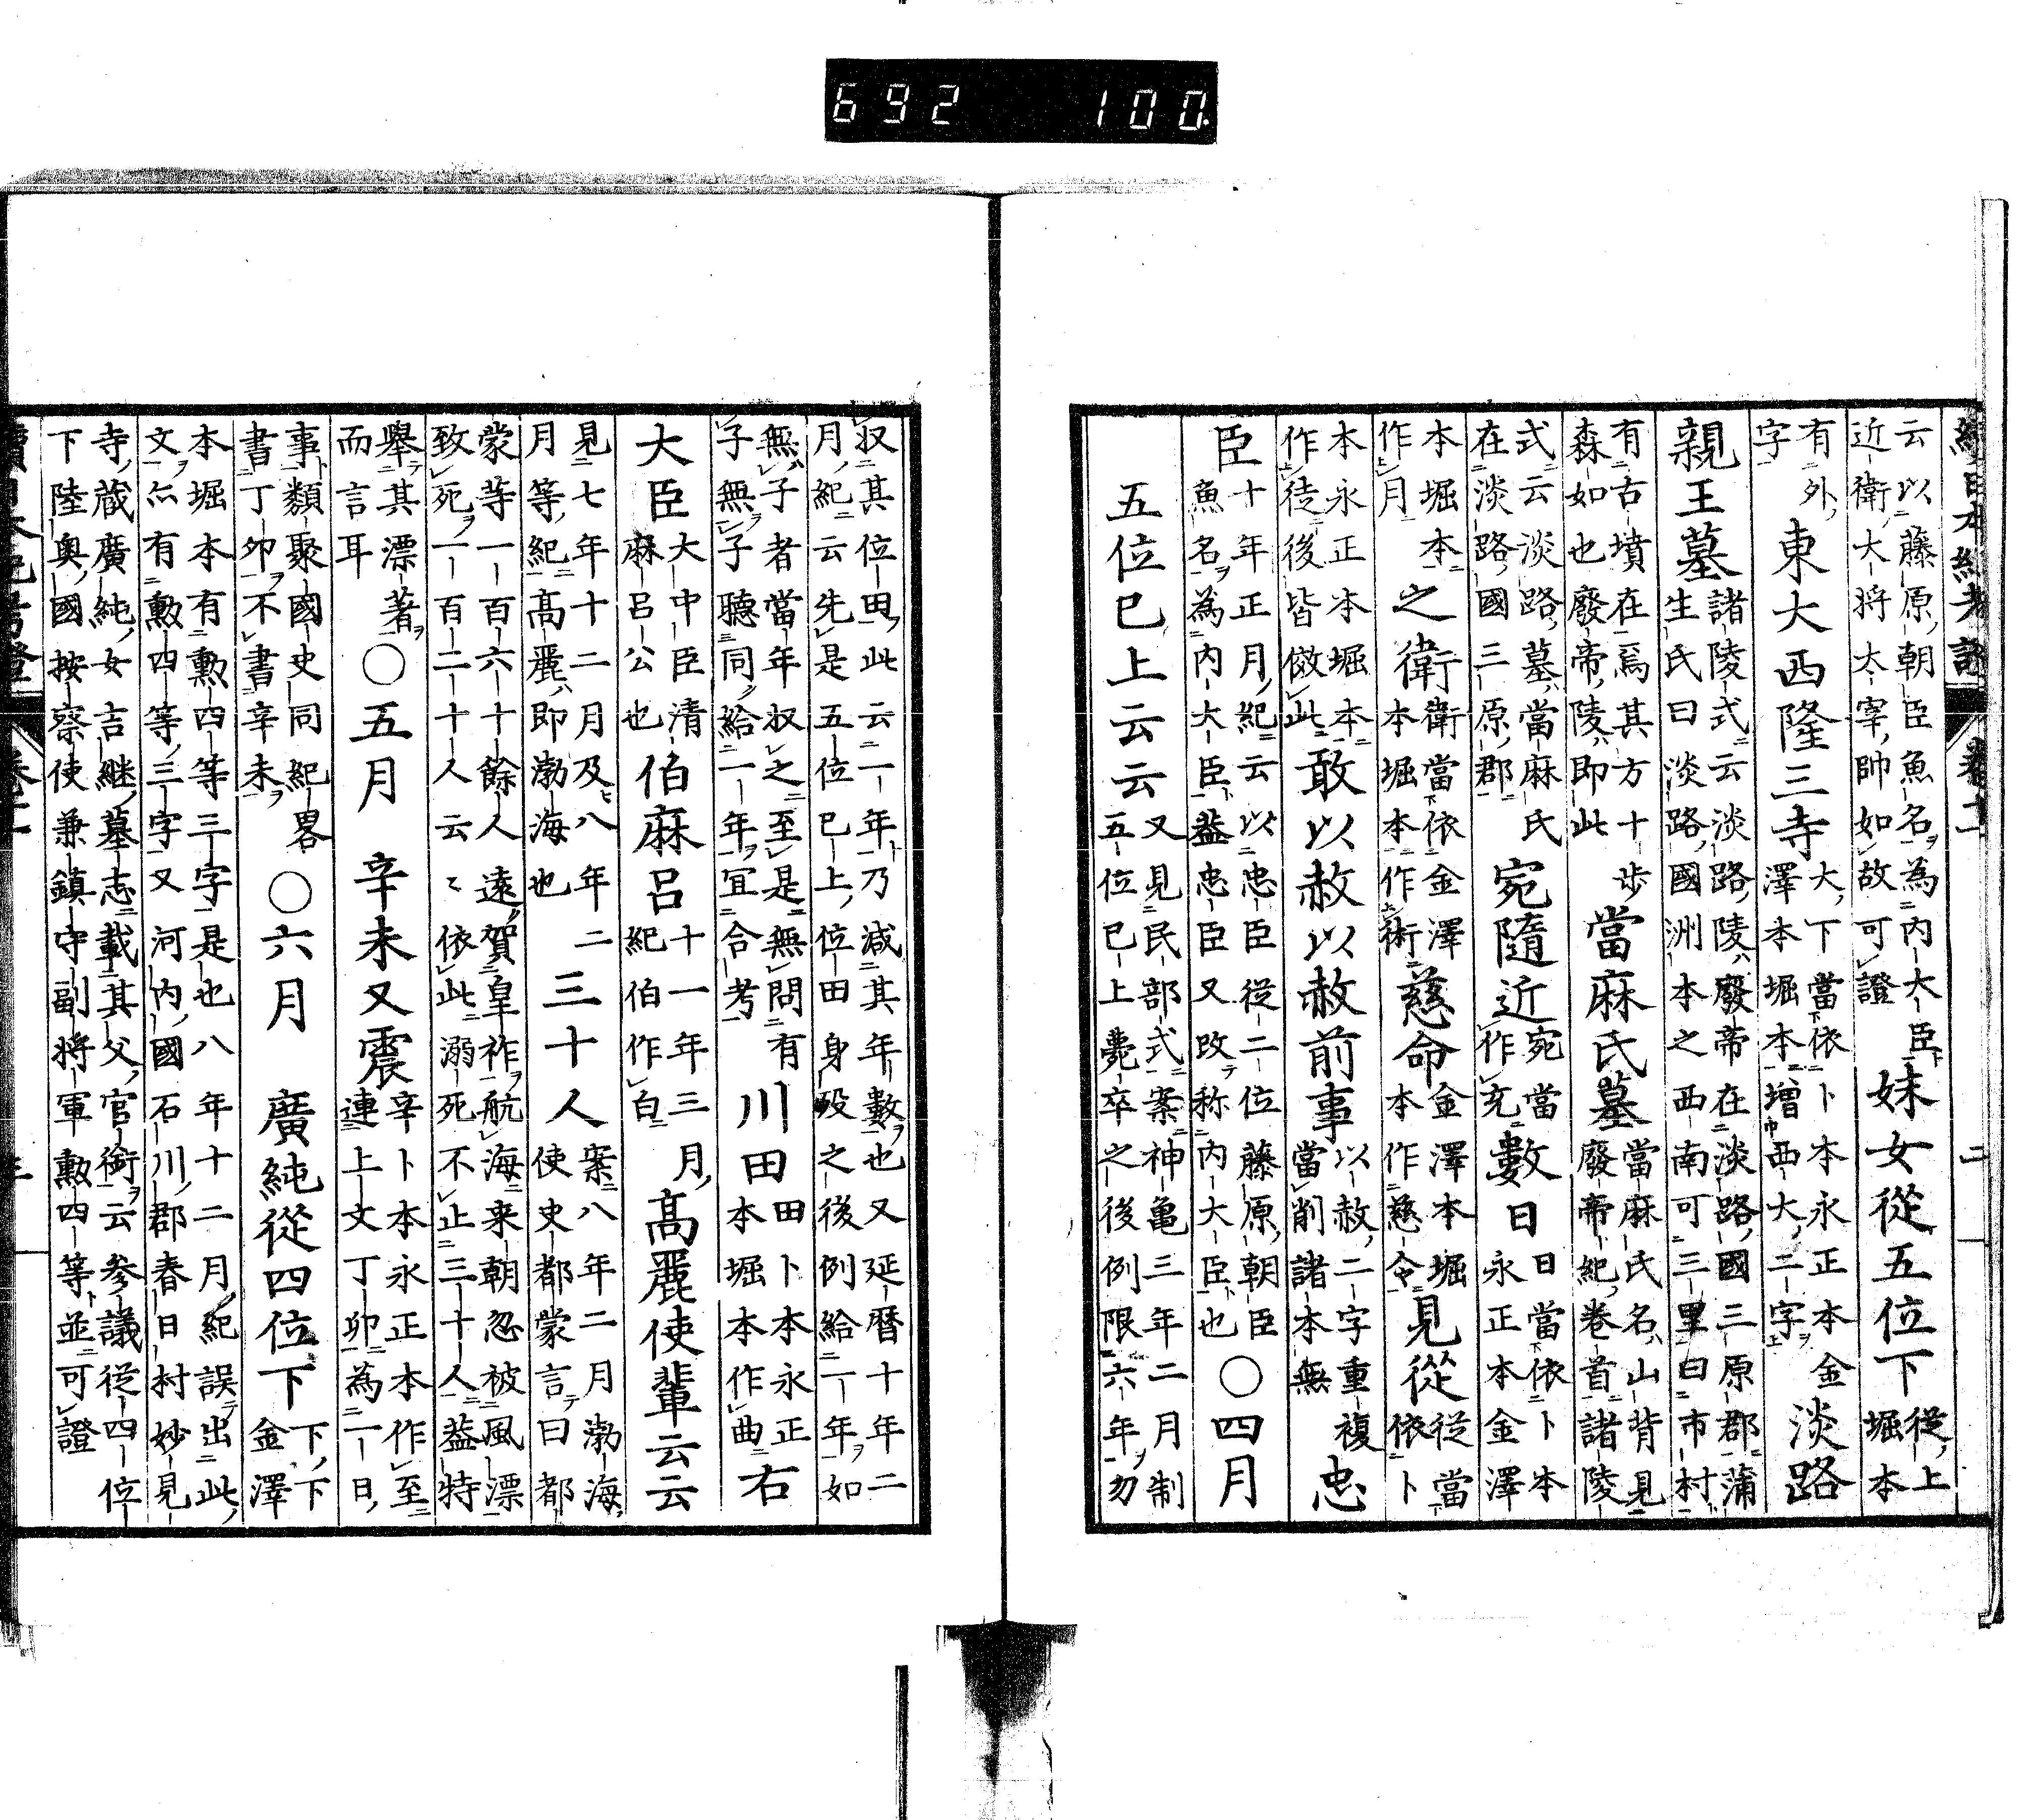 續日本紀考證 卷十一 二
云以藤原朝臣魚名為内大臣
近衛大将太宰帥如故可證
妹女從五位下
從上
堀本
有外
字
東大西隆三寺
大下當依卜本永正本金
澤本堀本增西大二字
淡路
親王墓
諸陵式云淡路陵廢帝在淡路國三原郡蒲
生氏曰淡路國洲本之西南可三里曰市村
有古墳在焉其方十歩
森如也廢帝陵即此
當麻氏墓
當麻氏名山背見
廢帝紀卷首諸陵
式云淡路墓當麻氏
在淡路國三原郡
宛隨近
宛當
作充
數日
日當依卜本
永正本金澤
本堀本
作月
之衛
衛當依金澤
本堀本作術
慈命
金澤本堀
本作慈令
見從
從當
依卜
本永正本堀本
作徒後皆倣此
敢以赦以赦前事
以赦二字重複
當削諸本無
忠
臣
十年正月紀云以忠臣從二位藤原朝臣
魚名為内大臣葢忠臣又改称内大臣也
○四月
五位已上云云
又見民部式案神亀三年二月制
五位已上薨卒之後例限六年勿
収其位田此云一年乃減其年數也又延暦十年二
月紀云先是五位已上位田身殁之後例給一年如
無子者當年収之至是無問有
子無子聽同給一年宜合考
川田
田卜本永正
本堀本作曲
右
大臣
大中臣清
麻呂公也
伯麻呂
十一年三月
紀伯作白
髙麗使輩云云
見七年十二月及八年二
月等紀髙麗即渤海也
三十人
案八年二月渤海
使史都蒙言曰都
蒙等一百六十餘人遠賀皇祚航海来朝忽被風漂
致死一百二十人云々依此溺死不止三十人葢特
舉其漂著
而言耳
○五月 辛未又震
辛卜本永正本作至
連上文丁卯為一日
事類聚國史同紀畧
書丁卯不書辛未
○六月 廣純從四位下
下下
金澤
本堀本有勲四等三字是也八年十二月紀誤出此
文亦有勲四等三字又河内國石川郡春日村妙見
寺蔵廣純女吉継墓志載其父官銜云参議從四位
下陸奥國按察使兼鎮守副将軍勲四等並可證
續日本紀考證 卷十一 三